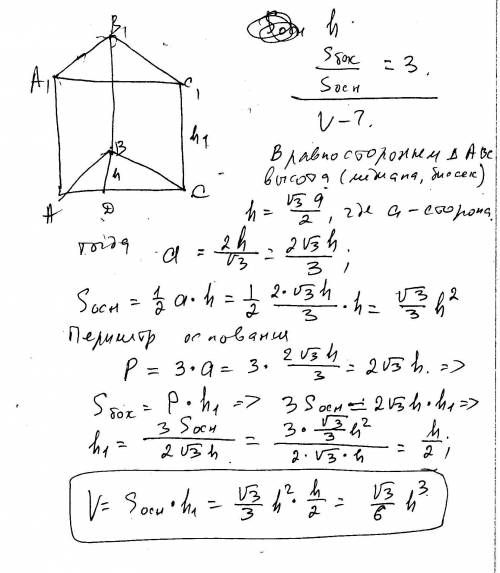 B₁
A₁
C₁
h₁
B
h
A
D
C
h
Sбок / Sосн = 3.
V - ?
В равностороннем Δ ABC
высота (медиана, биссек)
h = √3 a / 2, где a - сторона,
тогда a = 2h / √3 = 2√3 h / 3;
Sосн = 1/2 a · h = 1/2 · 2·√3 h / 3 · h = √3 / 3 h²
Периметр основания
P = 3 · a = 3 · 2√3 h / 3 = 2√3 h. =>
Sбок = P · h₁ => 3 Sосн = 2√3 h · h₁ =>
h₁ = 3 Sосн / 2√3 h = 3 · √3/3 h² / 2·√3·h = h / 2;
V = Sосн · h₁ = √3 / 3 h² · h / 2 = √3 / 6 h³